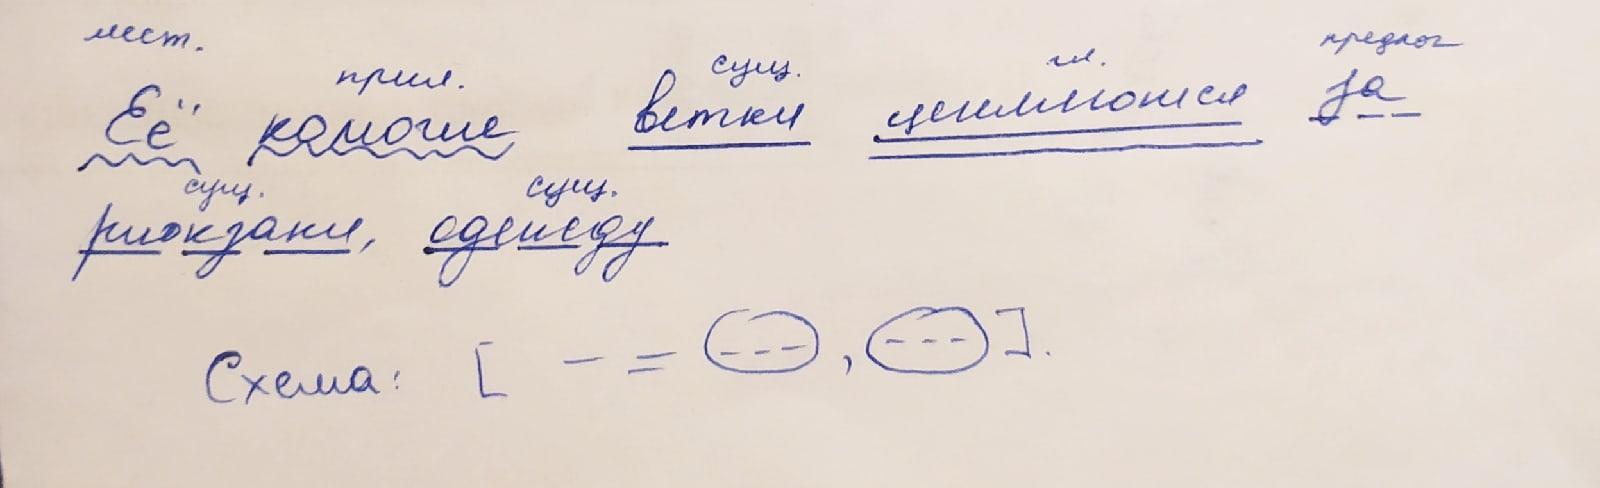 мест. прил. сущ. гл. предлог
Её колючие ветки цепляются за
сущ. сущ.
рюкзаки, одежду
Схема: [ – = (---), (---)].